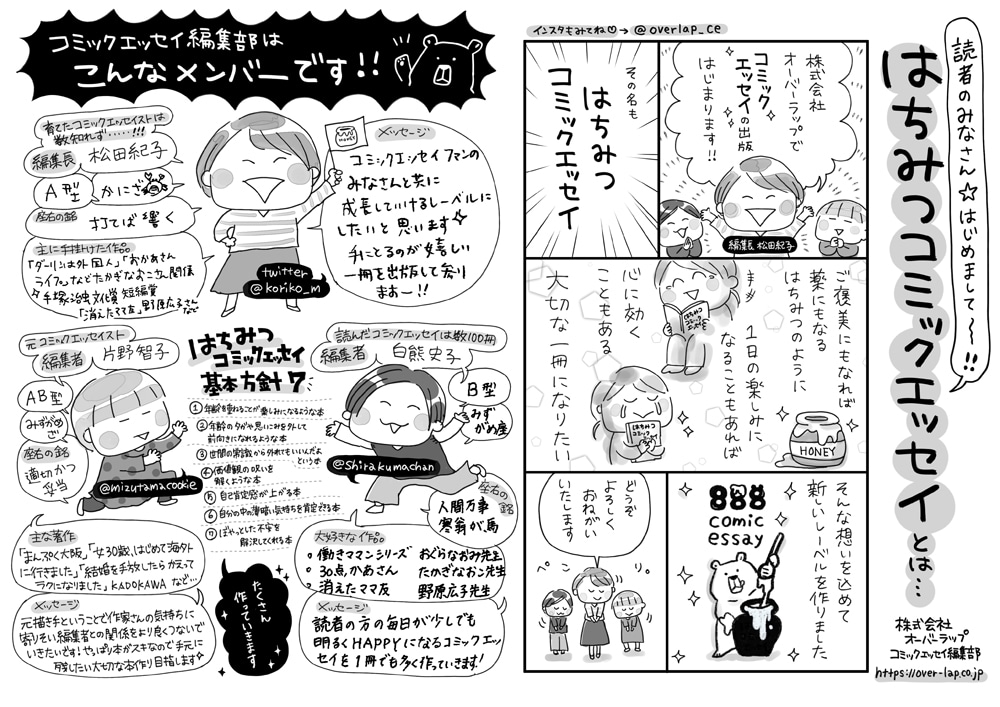 読者のみなさん☆はじめまして〜!!
はちみつコミックエッセイとは…
株式会社
オーバーラップ
コミックエッセイ編集部
https://over-lap.co.jp
インスタもみてね♡→@overlap_ce
株式会社
オーバーラップで
コミック
エッセイの出版
はじまります!!
編集長 松田紀子
その名も
はちみつ
コミックエッセイ
ご褒美にもなれば
薬にもなる
はちみつのように
1日の楽しみに
なることもあれば
心に効く
こともある
大切な一冊になりたい
はちみつ
コミック
エッセイ
はちみつ
コミック
HONEY
そんな想いを込めて
新しいレーベルを作りました
888
comic
essay
どうぞ
よろしく
おねがい
いたします
コミックエッセイ編集部は
こんなメンバーです!!
育てたコミックエッセイストは
数知れず……!!!
編集長 松田紀子
A型
かにざ
座右の銘
打てば響く
主に手掛けた作品
「ダーリンは外国人」「おかあさん
ライフ。」などたかぎなおこさん関係
手塚治虫文化賞 短編賞
「消えたママ友」野原広子さん
など
HONEY
メッセージ
コミックエッセイファンの
みなさんと共に
成長していけるレーベルに
したいと思います
手にとるのが嬉しい
一冊を出版して参り
ますー!!
twitter
@koriko_m
元コミックエッセイスト
編集者 片野智子
AB型
みずがめ
ざ
座右の銘
適切かつ
妥当
@mizutamacookie
主な著作
「まんぷく大阪」「女30歳、はじめて海外
に行きました」「結婚を手放したらかえって
ラクになりました」KADOKAWAなど…
メッセージ
元描き手ということで作家さんの気持ちに
寄りそい編集者との関係をより良くつないで
いきたいです!やっぱり本がスキなので手元に
残したい大切な本作り目指します
はちみつ
コミックエッセイ
基本方針7
①年齢を重ねることが楽しみになるような本
②年齢のタガや思いこみを外して
前向きになれるような本
③世間の常識から外れてもいいんだよ
という本
④価値観の呪いを
解くような本
⑤自己肯定感が上がる本
⑥自分の中の薄暗い気持ちを肯定できる本
⑦ぼやっとした不安を
解決してくれる本
たくさん
作っていきます
読んだコミックエッセイは数100冊
編集者 白熊史子
B型
みず
がめ座
@shirakumachan
座右の銘
人間万事
塞翁が馬
大好きな作品。
働きマンシリーズ おぐらなおみ先生
30点かあさん たかぎなおこ先生
消えたママ友 野原広子先生
メッセージ
読者の方の毎日が少しでも
明るくHAPPYになるコミックエッ
セイを1冊でも多く作っていきます!